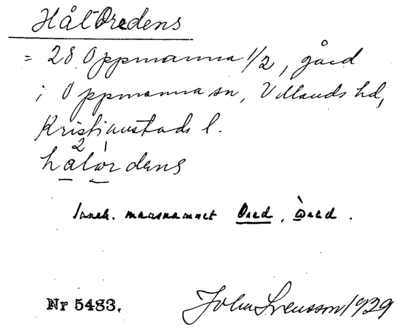 Hål Oredens
= 28 Oppmanna 1/2, gård
i Oppmanna sn, Villands hd,
Kristianstads l.
hålòrdens
Inneh. mansnamnet Ored, Òred.
Nr 5483.
John Svensson 1929